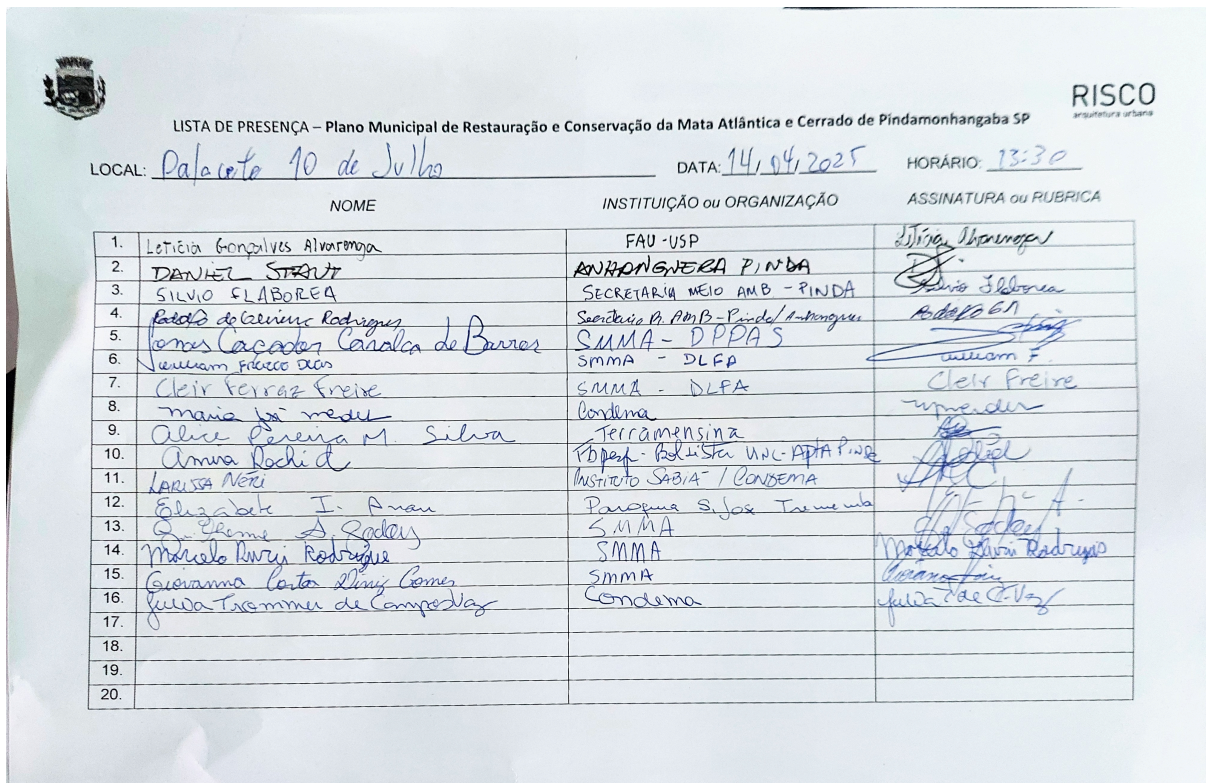 RISCO
arquitetura urbana
LISTA DE PRESENÇA – Plano Municipal de Restauração e Conservação da Mata Atlântica e Cerrado de Pindamonhangaba SP
LOCAL: Palacete 10 de Julho DATA: 14/04/2025 HORÁRIO: 13:30
NOME INSTITUIÇÃO ou ORGANIZAÇÃO ASSINATURA ou RUBRICA
1. Letícia Gonçalves Alvarenga FAU-USP Letícia Alvarenga
2. DANIEL STAUT ANHANGUERA PINDA
3. SILVIO FLABOREA SECRETARIA MEIO AMB - PINDA Silvio Flaborea
4. Rodrigues
5. Caçador de Barros SMMA - DPPAS
6. William Dias SMMA - DLFA William F.
7. Cleir Ferraz Freire SMMA - DLFA Cleir Freire
8. maria Condema
9. Alice Pereira M. Silva Terramensina
10. Amira Rachid Bolsista APTA
11. LARISSA NERI INSTITUTO SABIÁ / CONDEMA
12. Elizabete I. S. José
13. S. Godoy SMMA
14. Marcelo Rodrigues SMMA Marcelo Rodrigues
15. Giovanna Costa Diniz Gomes SMMA
16. Trommer de Campos Vaz Condema
17.
18.
19.
20.